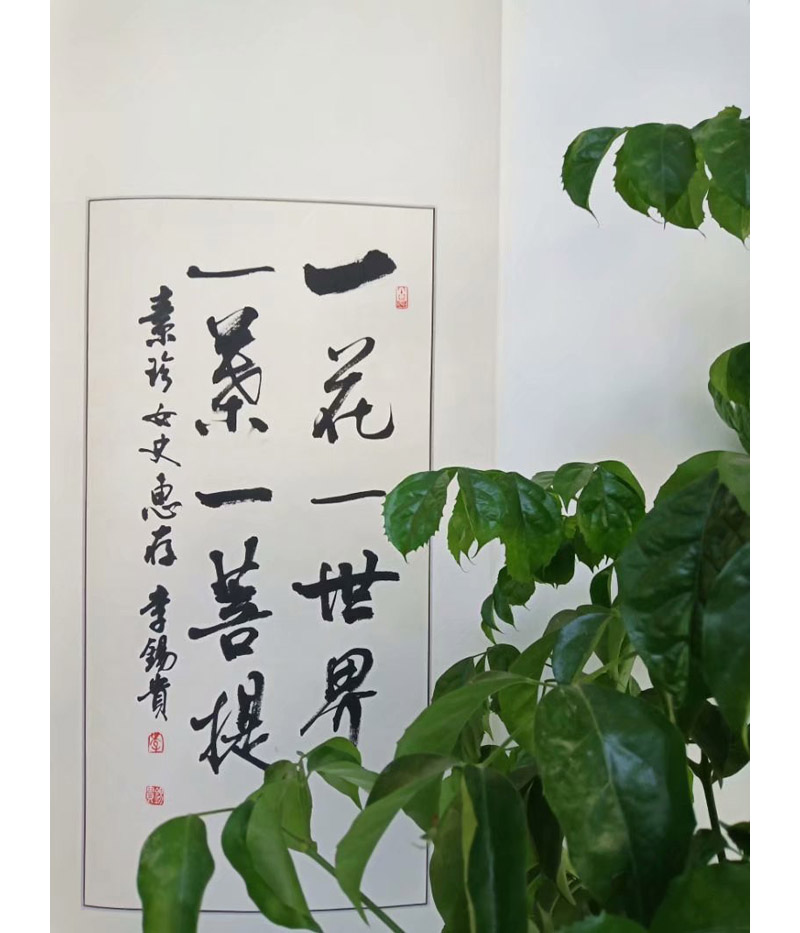 一花一世界
一葉一菩提
素珍女史惠存 李錫貴